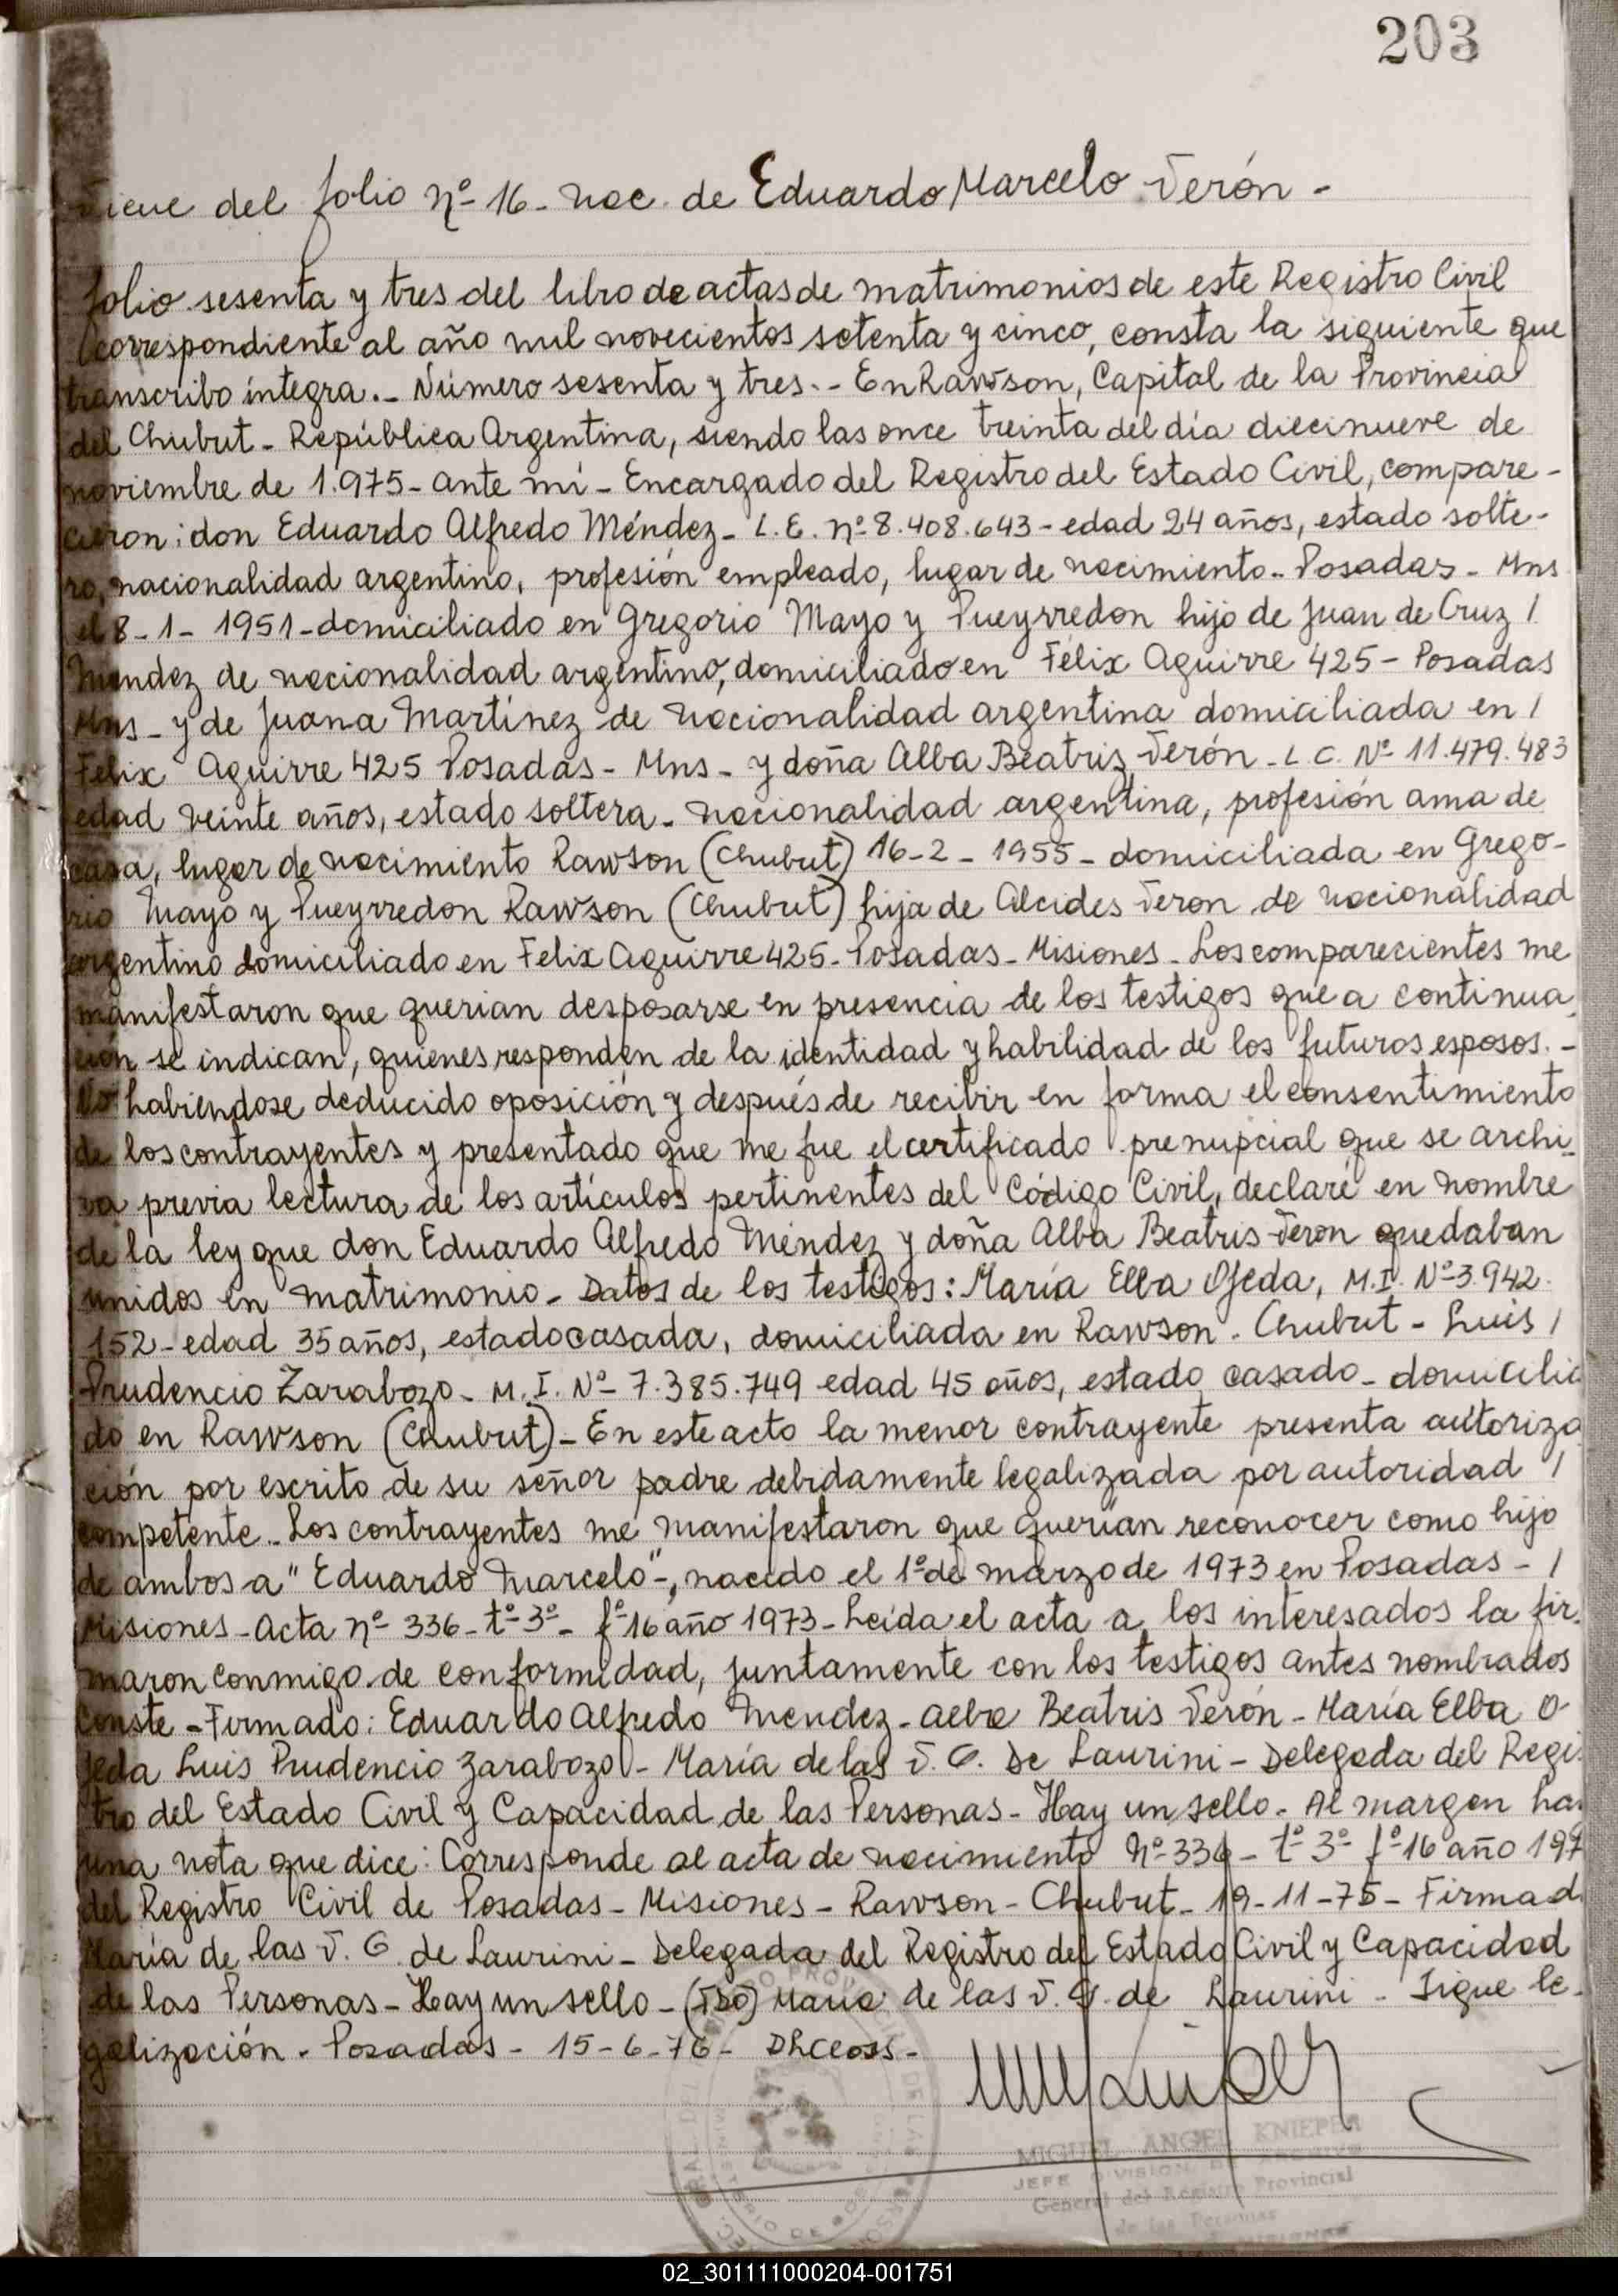 203
Viene del folio nº 16 - Nac. de Eduardo Marcelo Verón -
folio sesenta y tres del libro de actas de matrimonios de este Registro Civil
correspondiente al año mil novecientos setenta y cinco, consta la siguiente que
transcribo íntegra.- Número sesenta y tres.- En Rawson, Capital de la Provincia
del Chubut - República Argentina, siendo las once treinta del día diecinueve de
noviembre de 1.975 - ante mí - Encargado del Registro del Estado Civil, compare-
cieron: don Eduardo Alfredo Méndez - L.E. nº 8.408.643 - edad 24 años, estado solte-
ro, nacionalidad argentino, profesión empleado, lugar de nacimiento - Posadas - Mns
el 8-1-1951 - domiciliado en Gregorio Mayo y Pueyrredon hijo de Juan de Cruz /
Mendez de nacionalidad argentino, domiciliado en Félix Aguirre 425 - Posadas
Mns - y de Juana Martínez de nacionalidad argentina domiciliada en /
Felix Aguirre 425 Posadas - Mns - y doña Alba Beatris Verón - L C. Nº 11.479.483
edad veinte años, estado soltera - nacionalidad argentina, profesión ama de
casa, lugar de nacimiento Rawson (Chubut) 16-2-1955 - domiciliada en Grego-
rio Mayo y Pueyrredon Rawson (Chubut) hija de Alcides Veron de nacionalidad
argentino domiciliado en Felix Aguirre 425 - Posadas - Misiones - Los comparecientes me
manifestaron que querian desposarse en presencia de los testigos que a continua
ción se indican, quienes responden de la identidad y habilidad de los futuros esposos. -
No habiendose deducido oposición y después de recibir en forma el consentimiento
de los contrayentes y presentado que me fue el certificado prenupcial que se archi-
va previa lectura de los artículos pertinentes del Código Civil, declaré en nombre
de la ley que don Eduardo Alfredo Méndez y doña Alba Beatris Veron quedaban
unidos en matrimonio - Datos de los testigos: María Elba Ojeda, M.I. Nº 3.942.
152 - edad 35 años, estado casada, domiciliada en Rawson - Chubut - Luis /
Prudencio Zarabozo - M.I. Nº 7.385.749 edad 45 años, estado casado - domicilia
do en Rawson (Chubut) - En este acto la menor contrayente presenta autoriza
ción por escrito de su señor padre debidamente legalizada por autoridad /
competente - Los contrayentes me manifestaron que querían reconocer como hijo
de ambos a "Eduardo Marcelo", nacido el 1º de marzo de 1973 en Posadas - /
Misiones - Acta nº 336 - tº 3º - fº 16 año 1973 - Leída el acta a los interesados la fir-
maron conmigo de conformidad, juntamente con los testigos antes nombrados
Conste - Firmado: Eduardo Alfredo Mendez - Alba Beatris Verón - María Elba O
jeda Luis Prudencio Zarabozo - María de las V. G. De Laurini - Delegada del Regis
tro del Estado Civil y Capacidad de las Personas - Hay un sello - Al margen hay
una nota que dice: Corresponde al acta de nacimiento Nº 336 - tº 3º fº 16 año 197
del Registro Civil de Posadas - Misiones - Rawson - Chubut - 19-11-75 - Firmad
María de las V. G. de Laurini - Delegada del Registro del Estado Civil y Capacidad
de las Personas - Hay un sello - (Fdo) María de las V. G. de Laurini - Sigue le-
galización - Posadas - 15-6-76 -
MIGUEL ANGEL KNIEPER
JEFE DIVISION DE ARCHIVO
General del Registro Provincial
de las Personas
02_301111000204-001751